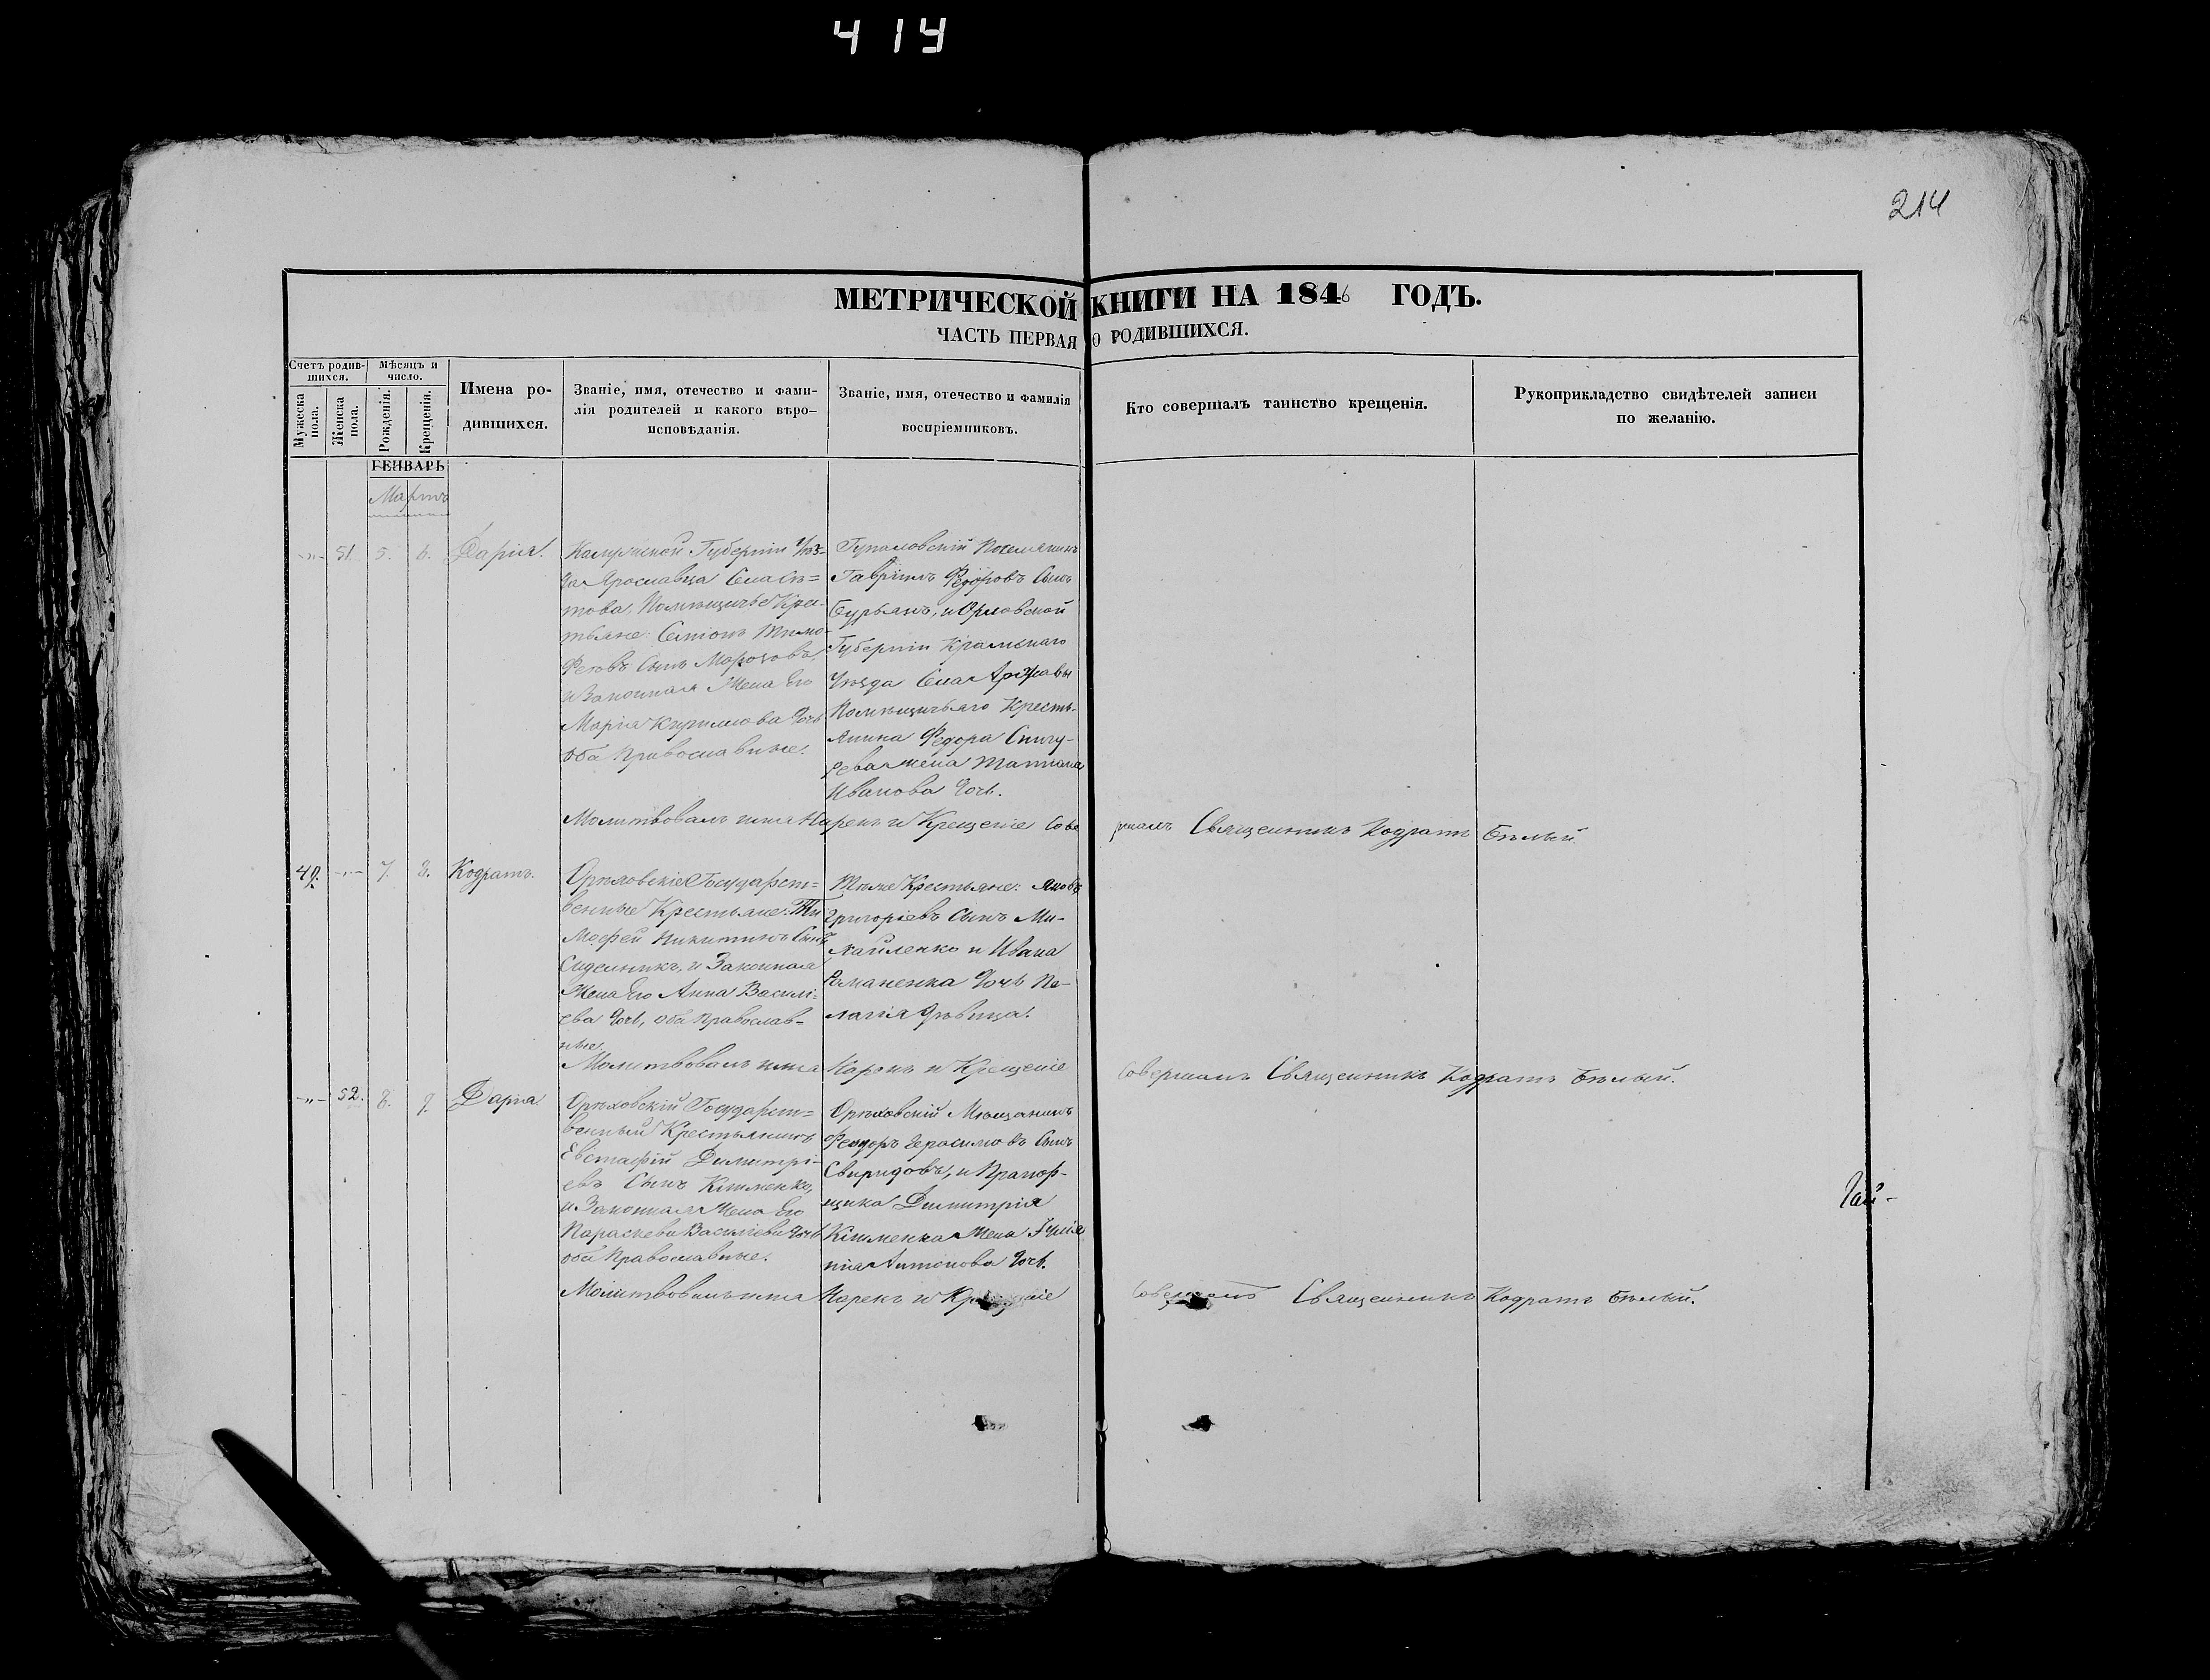 414
214
МЕТРИЧЕСКОЙ КНИГИ НА 1846 ГОДЪ.
ЧАСТЬ ПЕРВАЯ О РОДИВШИХСЯ.
Счетъ родив-
шихся.
Мужеска
пола.
Женска
пола.
Мѣсяцъ и
число.
Рожденія.
Крещенія.
Имена ро-
дившихся.
Званіе, имя, отечество и фами-
лія родителей и какого вѣро-
исповѣданія.
Званіе, имя, отечество и фамилія
воспріемниковъ.
Кто совершалъ таинство крещенія.
Рукоприкладство свидѣтелей записи
по желанію.
ГЕНВАРЬ
Мартъ
-"- 51. 5. 6. Дарія.
Губерніи
Ярославца Села
Помѣщичьи Крес-
тьяне: Симіонъ Тимо-
феевъ Сынъ Морозовъ,
и Законная Жена Его
Марія Кирилова Дочь
оба Православные.
Гавріилъ Федоровъ Сынъ
Бурьянъ, и Орловской
Губерніи
Уѣзда Села
Помѣщичьяго Кресть-
янина Федора
жена Татіана
Иванова Дочь.
Молитвовалъ имя Нарекъ и Крещеніе Сове
ршалъ Священникъ Кодратъ Бѣлый.
49. -"- 7. 8. Кодратъ.
Орѣховскіе Государст=
венные Крестьяне: Ти
мофей Никитинъ Сынъ
и Законная
Жена Его Анна Василі=
ева Дочь, оба Православ=
ные.
Тѣже Крестьяне: Яковъ
Григоріевъ Сынъ Ми-
хайленко и Ивана
Дочь Пе-
лагія Дѣвица.
Молитвовалъ имя Нарекъ и Крещеніе
Совершалъ Священникъ Кодратъ Бѣлый.
-"- 52. 8. 9. Дарія
Орѣховскій Государст=
венный Крестьянинъ
Евстафій Димитрі-
евъ Сынъ Клименко,
и Законная Жена Его
Параскева Василіева Дочь
оба Православные.
Орѣховскій Мѣщанинъ
Феодоръ Герасимовъ Сынъ
Свиридовъ, и Прапор-
щика Димитрія
Клименка Жена
Антонова Дочь.
Молитвовалъ имя Нарекъ и Крещеніе
Совершалъ Священникъ Кодратъ Бѣлый.